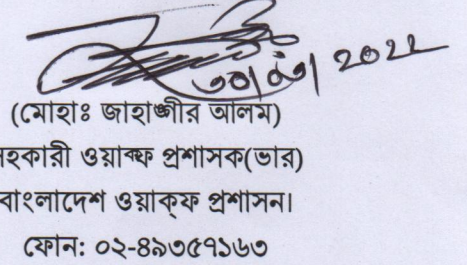 ২০২২
(মোহাঃ জাহাঙ্গীর আলম)
হকারী ওয়াক্ফ প্রশাসক(ভার)
বাংলাদেশ ওয়াক্ফ প্রশাসন।
ফোন: ০২-৪৯৩৫৭১৬৩